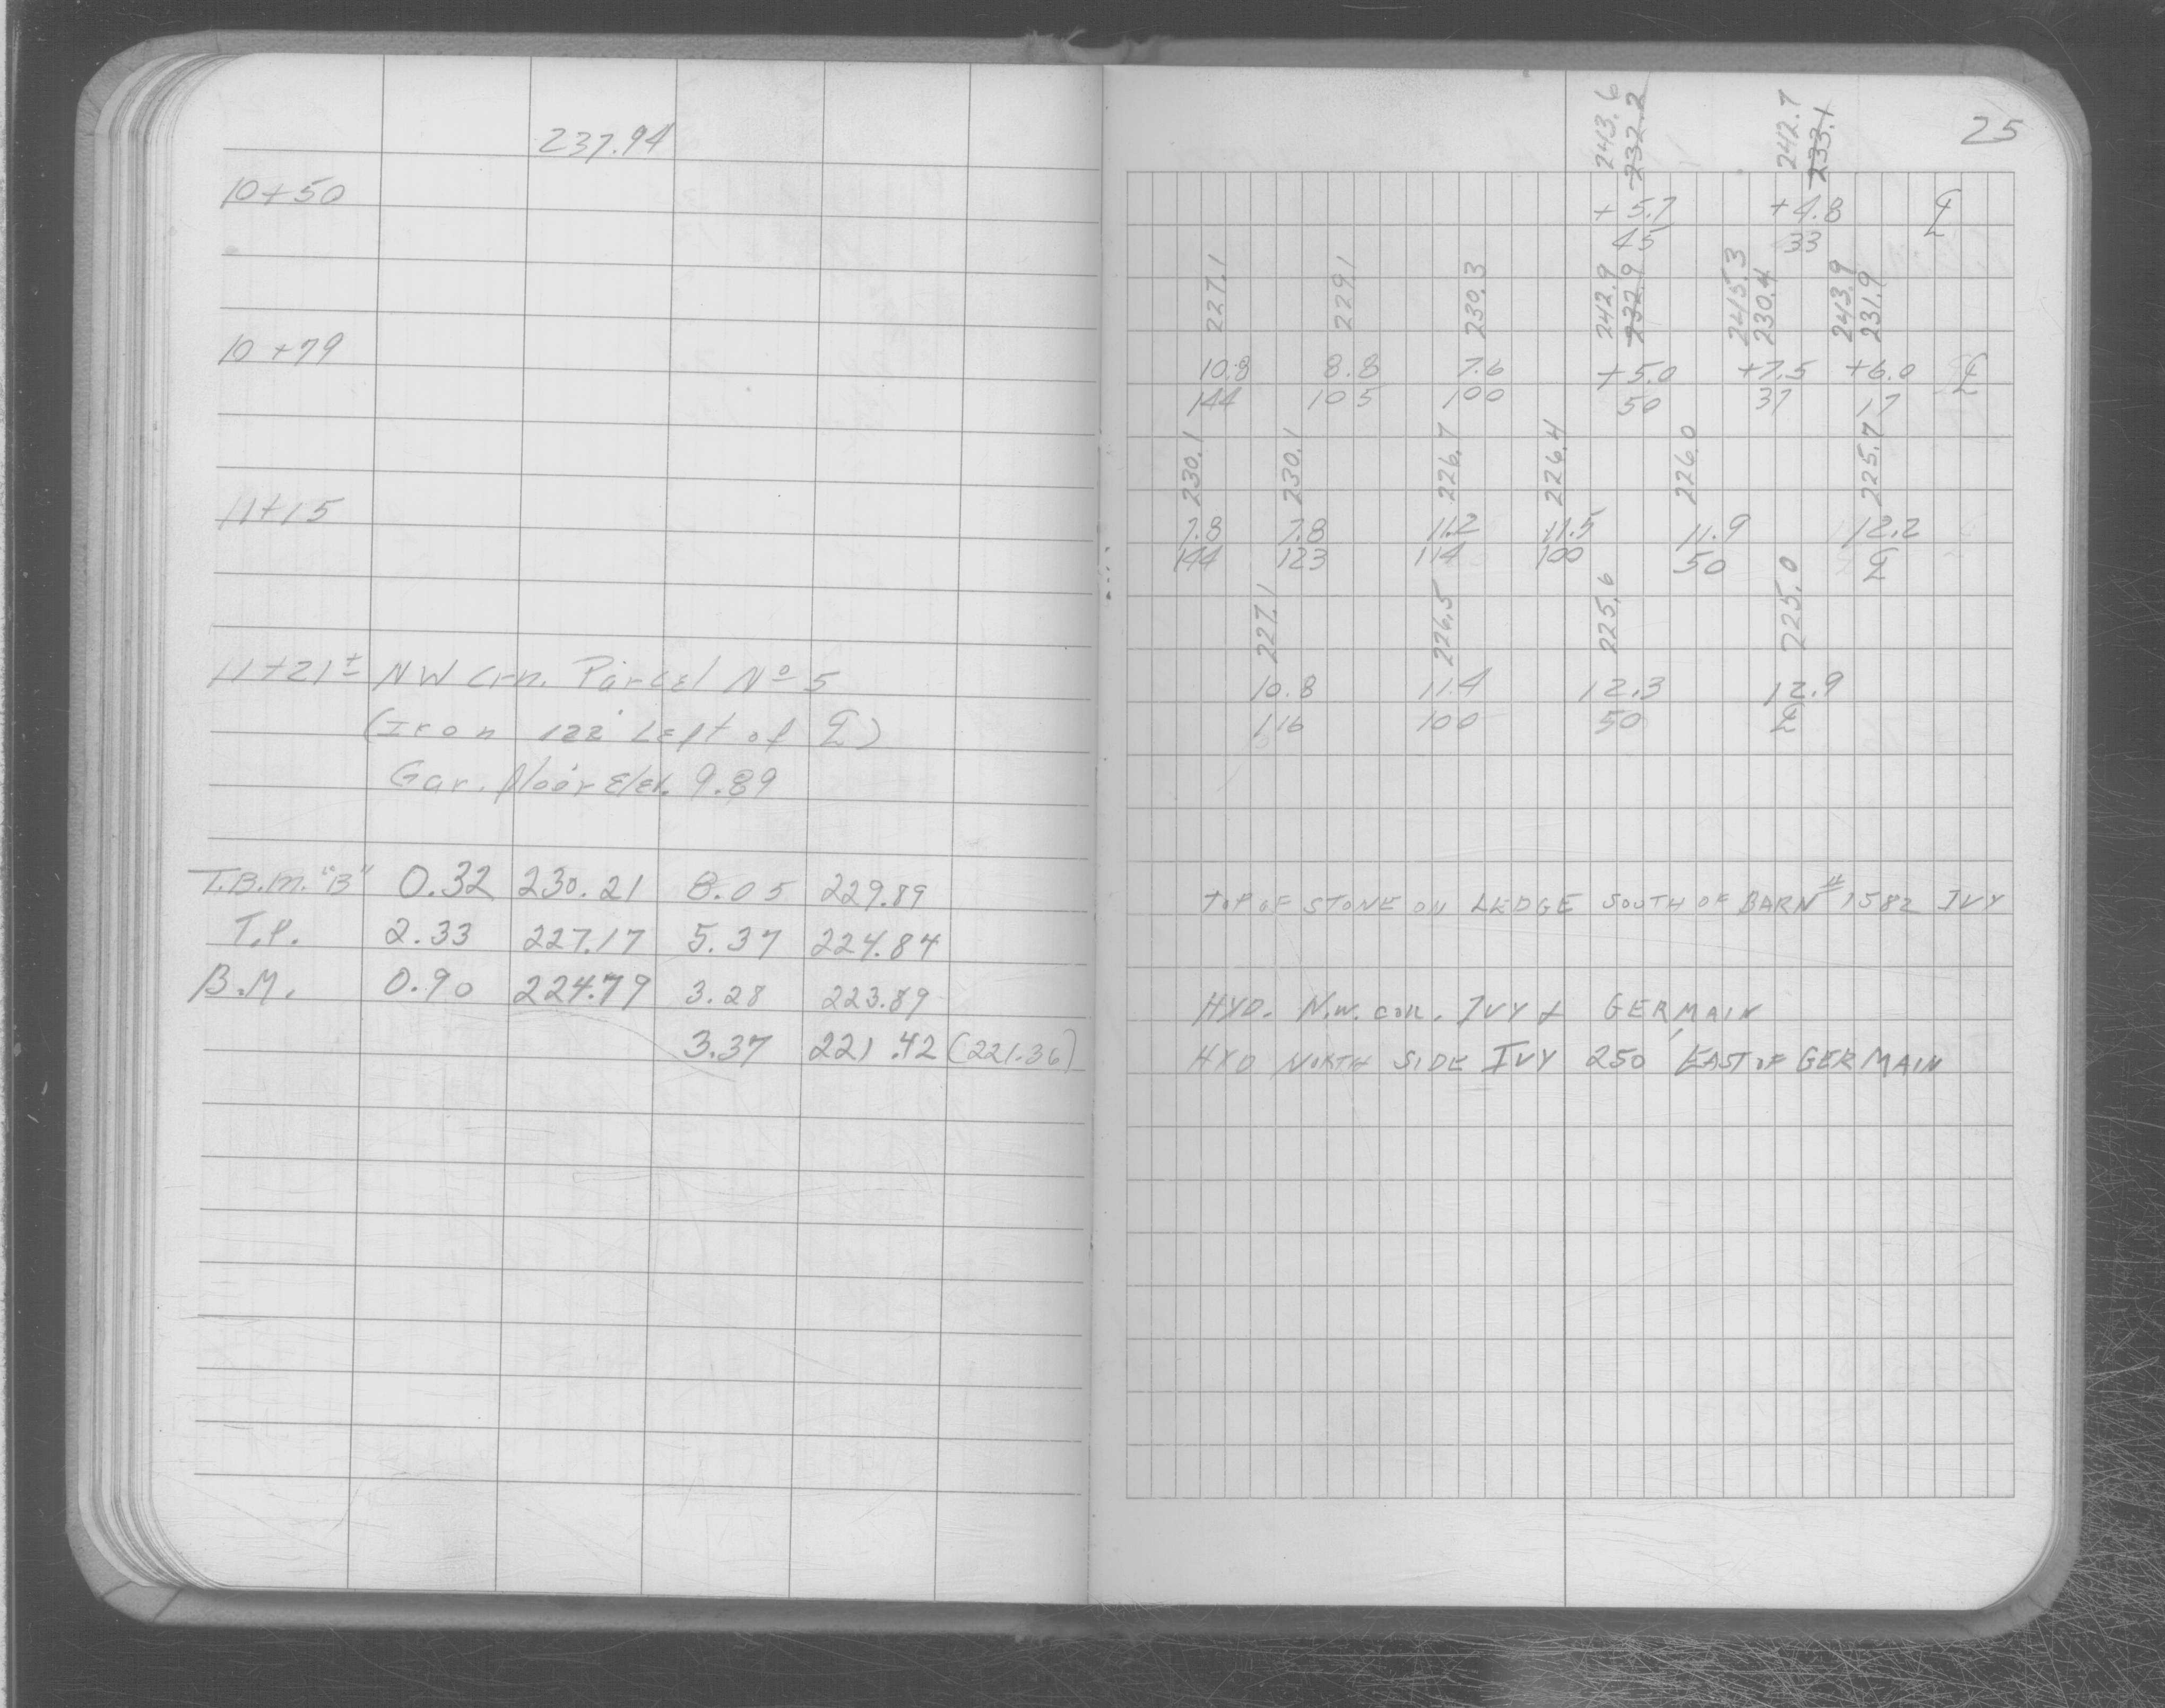 237.94
10+50
10+79
11+15
11+21± NW Crn. Parcel Nº 5
(Iron 122' Left of ℄)
Gar. floor Elev. 9.89
T.B.M. "B" 0.32 230.21 8.05 229.89
T.P. 2.33 227.17 5.37 224.84
B.M. 0.90 224.79 3.28 223.89
3.37 221.42 (221.36)
25
243.6 242.7
232.2 233.1
+5.7 +4.8 ℄
45 33
227.1 229.1 230.3 242.9 245.3 243.9
232.9 230.4 231.9
10.8 8.8 7.6 +5.0 +7.5 +6.0 ℄
144 105 100 50 37 17
230.1 230.1 226.7 226.4 226.0 225.7
7.8 7.8 11.2 11.5 11.9 12.2
144 123 114 100 50 ℄
227.1 226.5 225.6 225.0
10.8 11.4 12.3 12.9
116 100 50 ℄
TOP OF STONE ON LEDGE SOUTH OF BARN #1582 IVY
HYD. N.W. COR. IVY & GERMAIN
HYD NORTH SIDE IVY 250' EAST OF GERMAIN